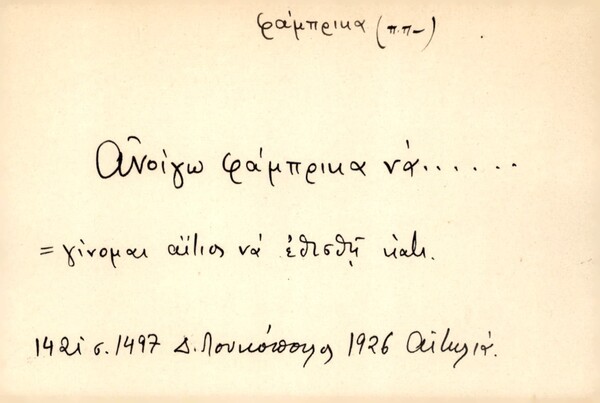 φάμπρικα (π.π-)
Ἀνοίγω φάμπρικα νά......
= γίνομαι αἴτιος νά ἐθισθῇ κατι.
142 σ. 1497 Δ. Λουκόπουλος 1926 Αἰτωλία.